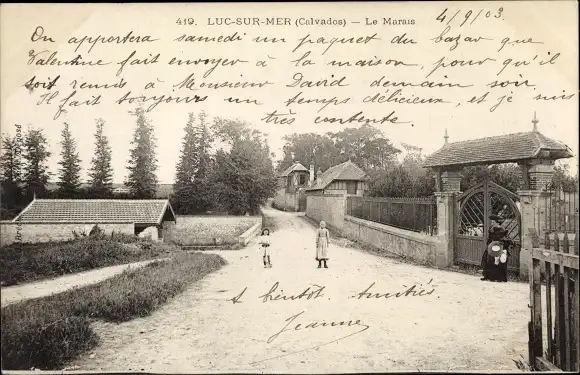 419. LUC-SUR-MER (Calvados) — Le Marais
4/9/03.
On apportera samedi un paquet du bazar que
Valentine fait envoyer à la maison, pour qu'il
soit rendu à Monsieur David demain soir
Il fait toujours un temps délicieux, et je suis
très contente.
A bientôt. Amitiés.
Jeanne